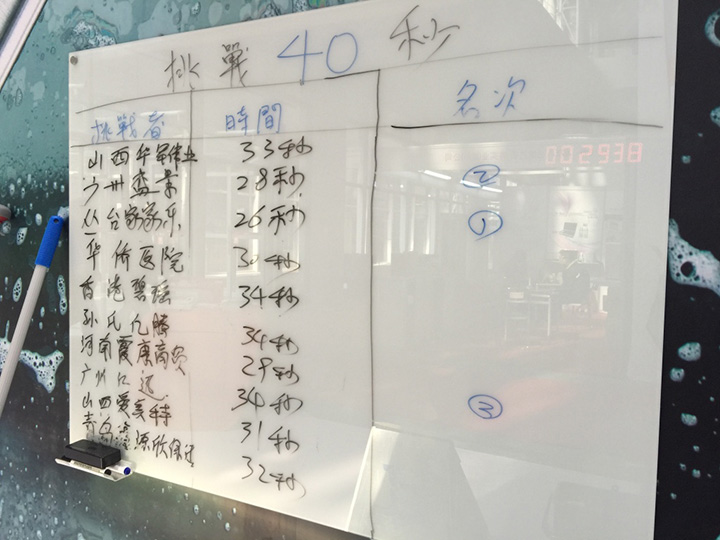 挑戰 40 秒
挑戰者 時間 名次
山西 33秒
28秒 ②
丛台家家乐 26秒 ①
华侨医院 30秒
香港碧瑶 34秒
孙氏 34秒
河南霞康商贸 29秒
广州仁远 34秒 ③
山西爱美特 31秒
青岛 源欣保洁 32秒
002938